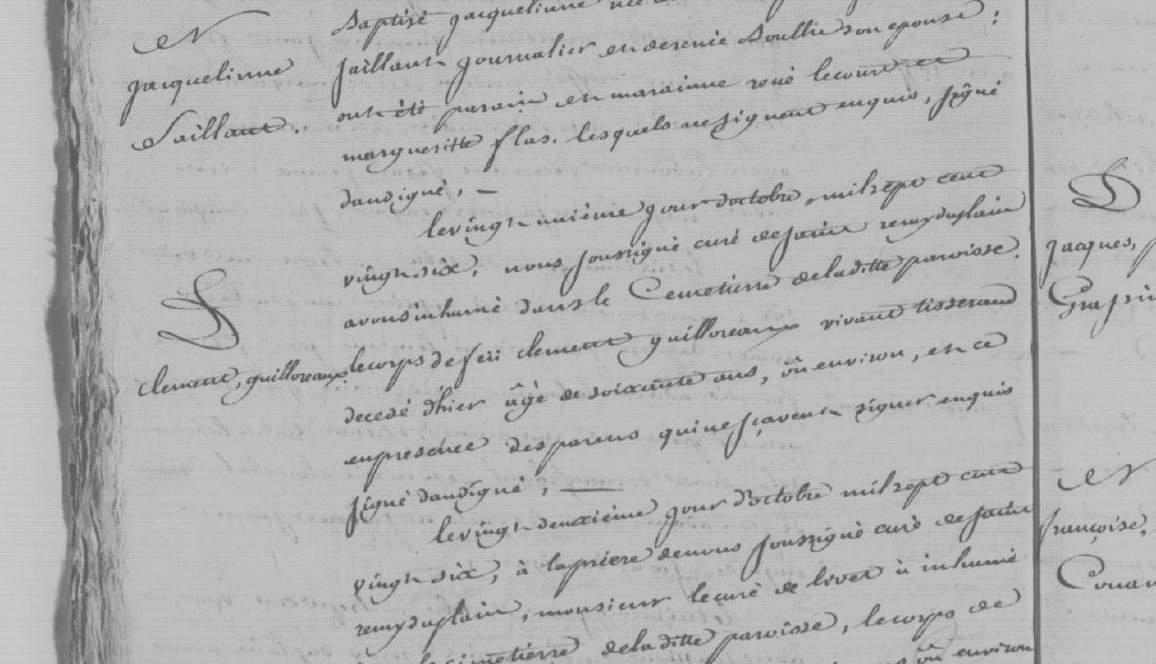 N
jacquelinne
Saillant.
Baptisé jacquelinne née
jaillant journalier et de renée Soullie son epouse;
ont été parain et marainne rené lecourt et
margueritte flas. lesquels ne signent enquis, signé
dandigné, —
S
clement, guilloreaux.
le vingt unième jour d'octobre, mil sept cent
vingt six, nous soussigné curé de saint remy du plain
avons inhumé dans le Cemetierre de la ditte paroisse.
le corps de feü clement guilloreaux vivant tisserand
decedé d'hier âgé de soixante ans, oû environ, et ce
en presence des parens qui ne sçavent signer enquis
signé dandigné, —
le vingt deuxième jour d'octobre mil sept cent
vingt six, à la priere de nous soussigné curé de saint
remy du plain, monsieur le curé de livet à inhumé
cimetierre de la ditte paroisse, le corps de
oû environ
S
jacques,
N
françoise,